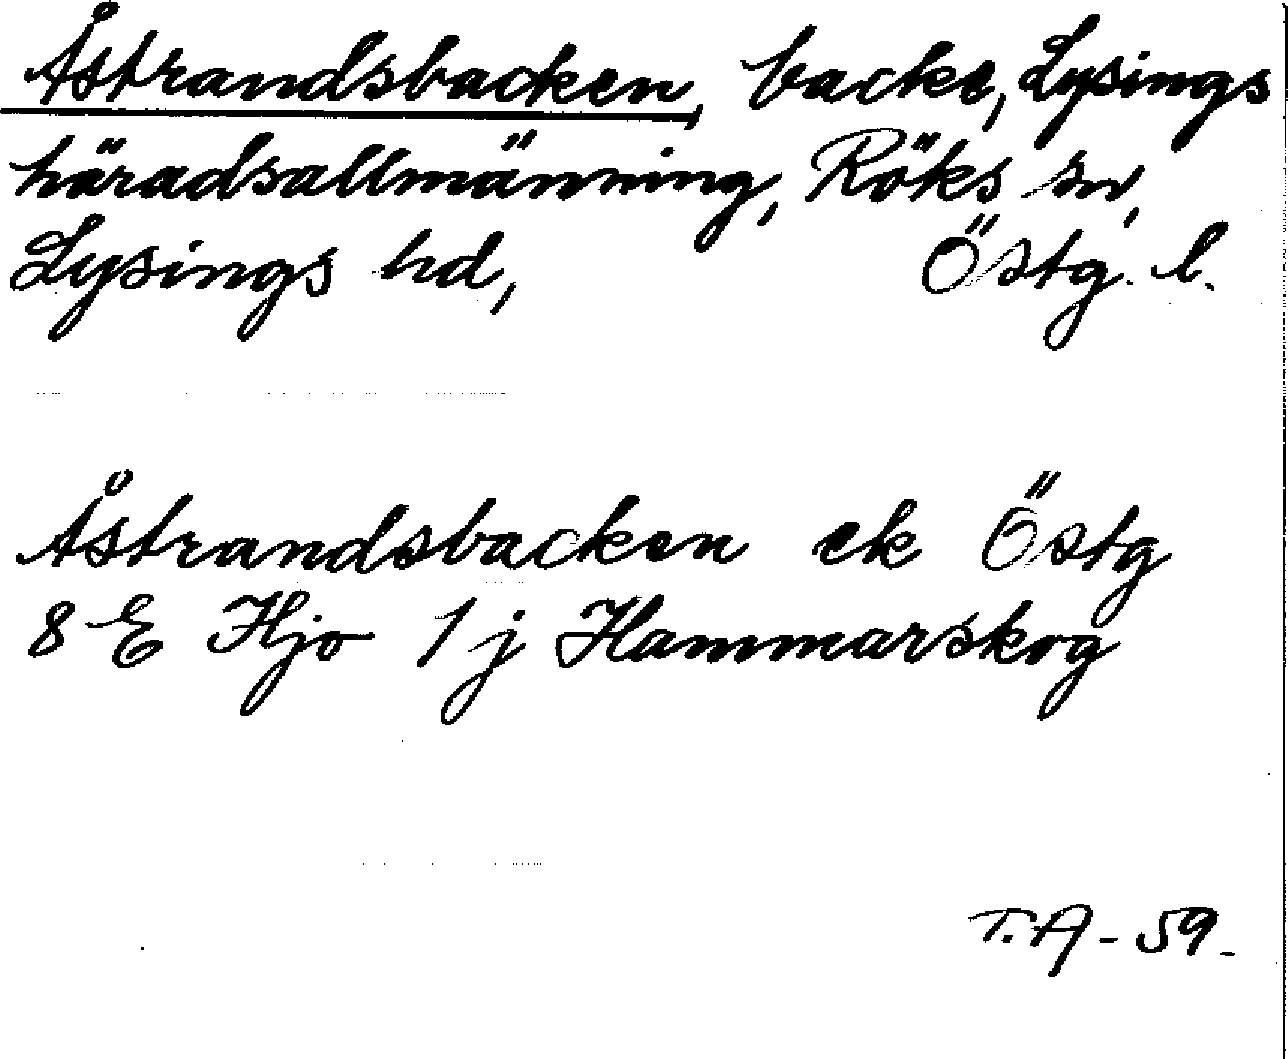 Åstrandsbacken, backe, Lysings
häradsallmänning, Röks sn,
Lysings hd, Östg. l.
Åstrandsbacken ek Östg
8 E Hjo 1 j Hammarskog
T.A - 59.